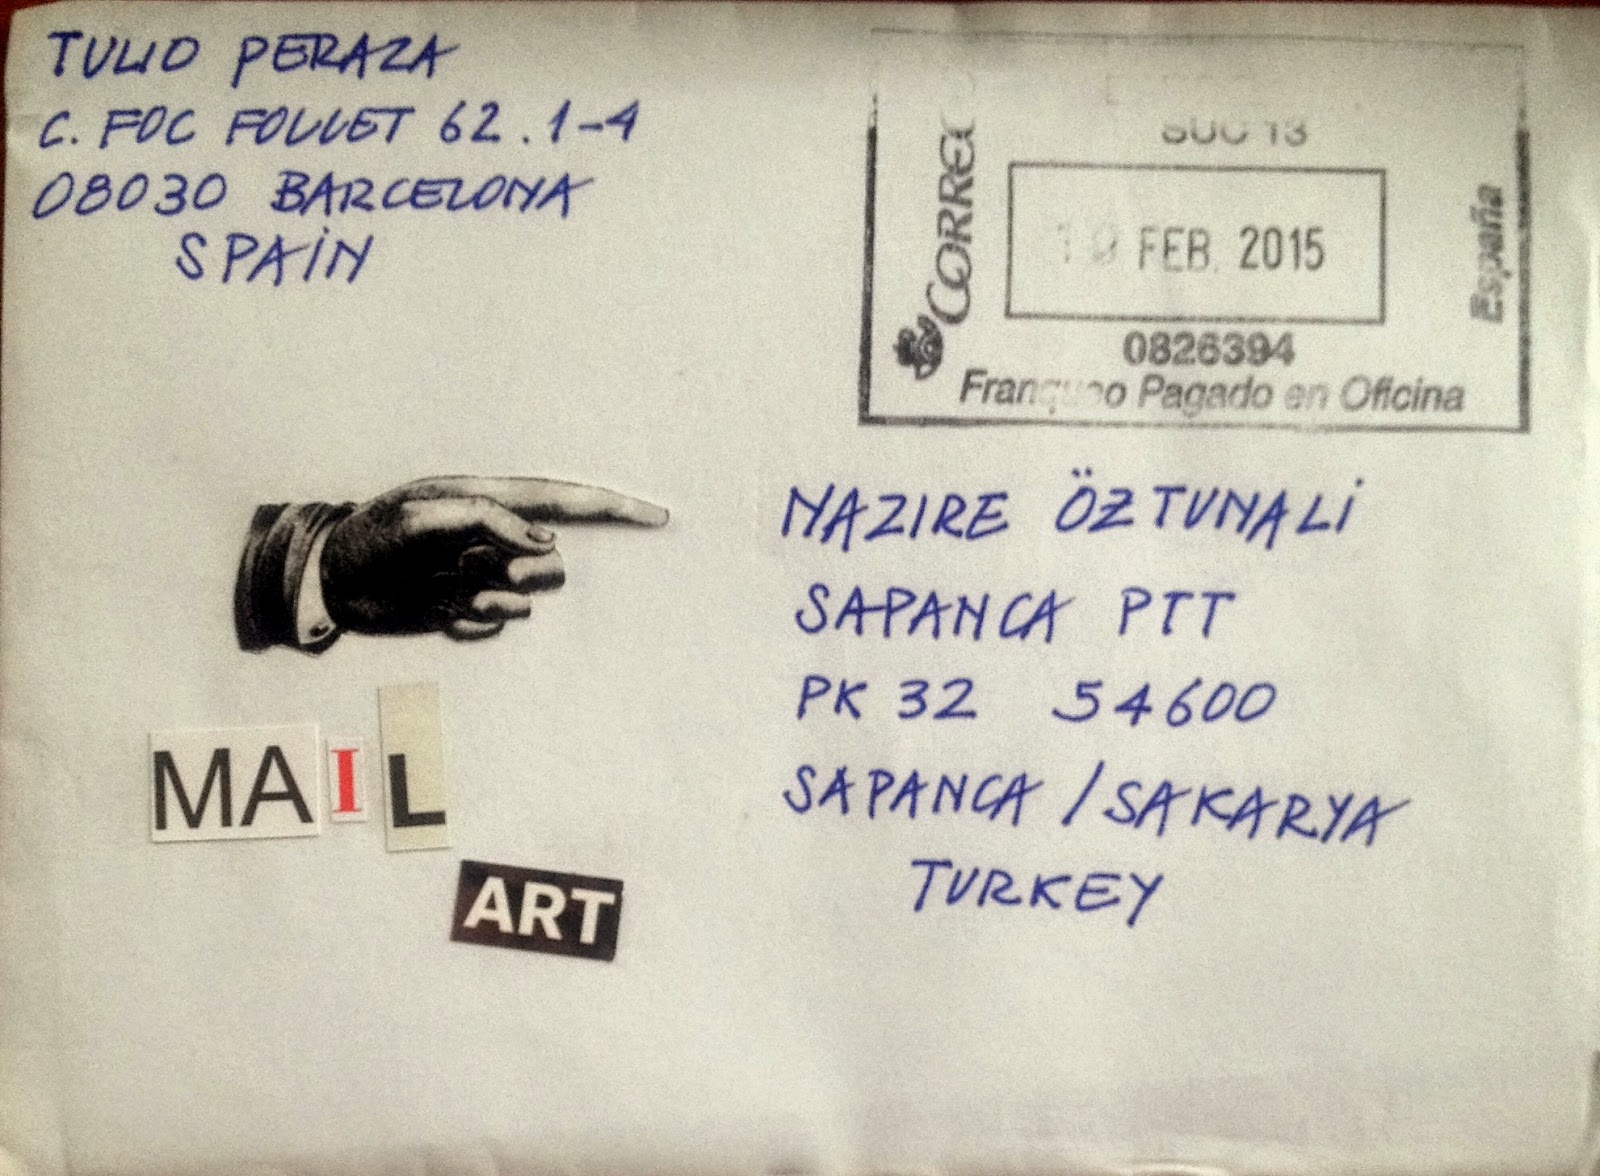 TULIO PERAZA
C. FOC FOLLET 62 . 1-4
08030 BARCELONA
SPAIN
SUC 13
FEB. 2015
0826394
Franqueo Pagado en Oficina
CORREO
España
NAZIRE ÖZTUNALİ
SAPANCA PTT
PK 32 54600
SAPANCA / SAKARYA
TURKEY
MAIL
ART